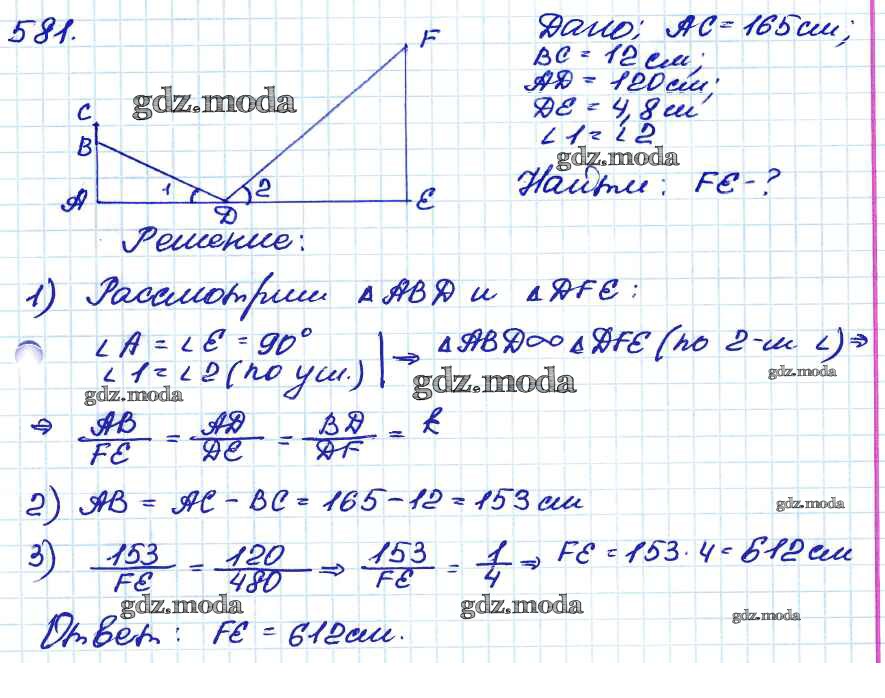 581.
Дано: AC = 165см;
BC = 12см;
AD = 120см;
DE = 4,8м
∠1 = ∠2
Найти: FE - ?
gdz.moda
gdz.moda
F
C
B
A
1
2
D
E
Решение:
1) Рассмотрим △ABD и △DFE:
∠A = ∠E = 90°
∠1 = ∠2 (по усл.) | ⇒ △ABD ∞ △DFE (по 2-м ∠) ⇒
gdz.moda
gdz.moda
gdz.moda
⇒ AB/FE = AD/DE = BD/DF = k
2) AB = AC - BC = 165 - 12 = 153 см
gdz.moda
3) 153/FE = 120/480 ⇒ 153/FE = 1/4 ⇒ FE = 153 · 4 = 612 см
gdz.moda
gdz.moda
gdz.moda
Ответ: FE = 612см.